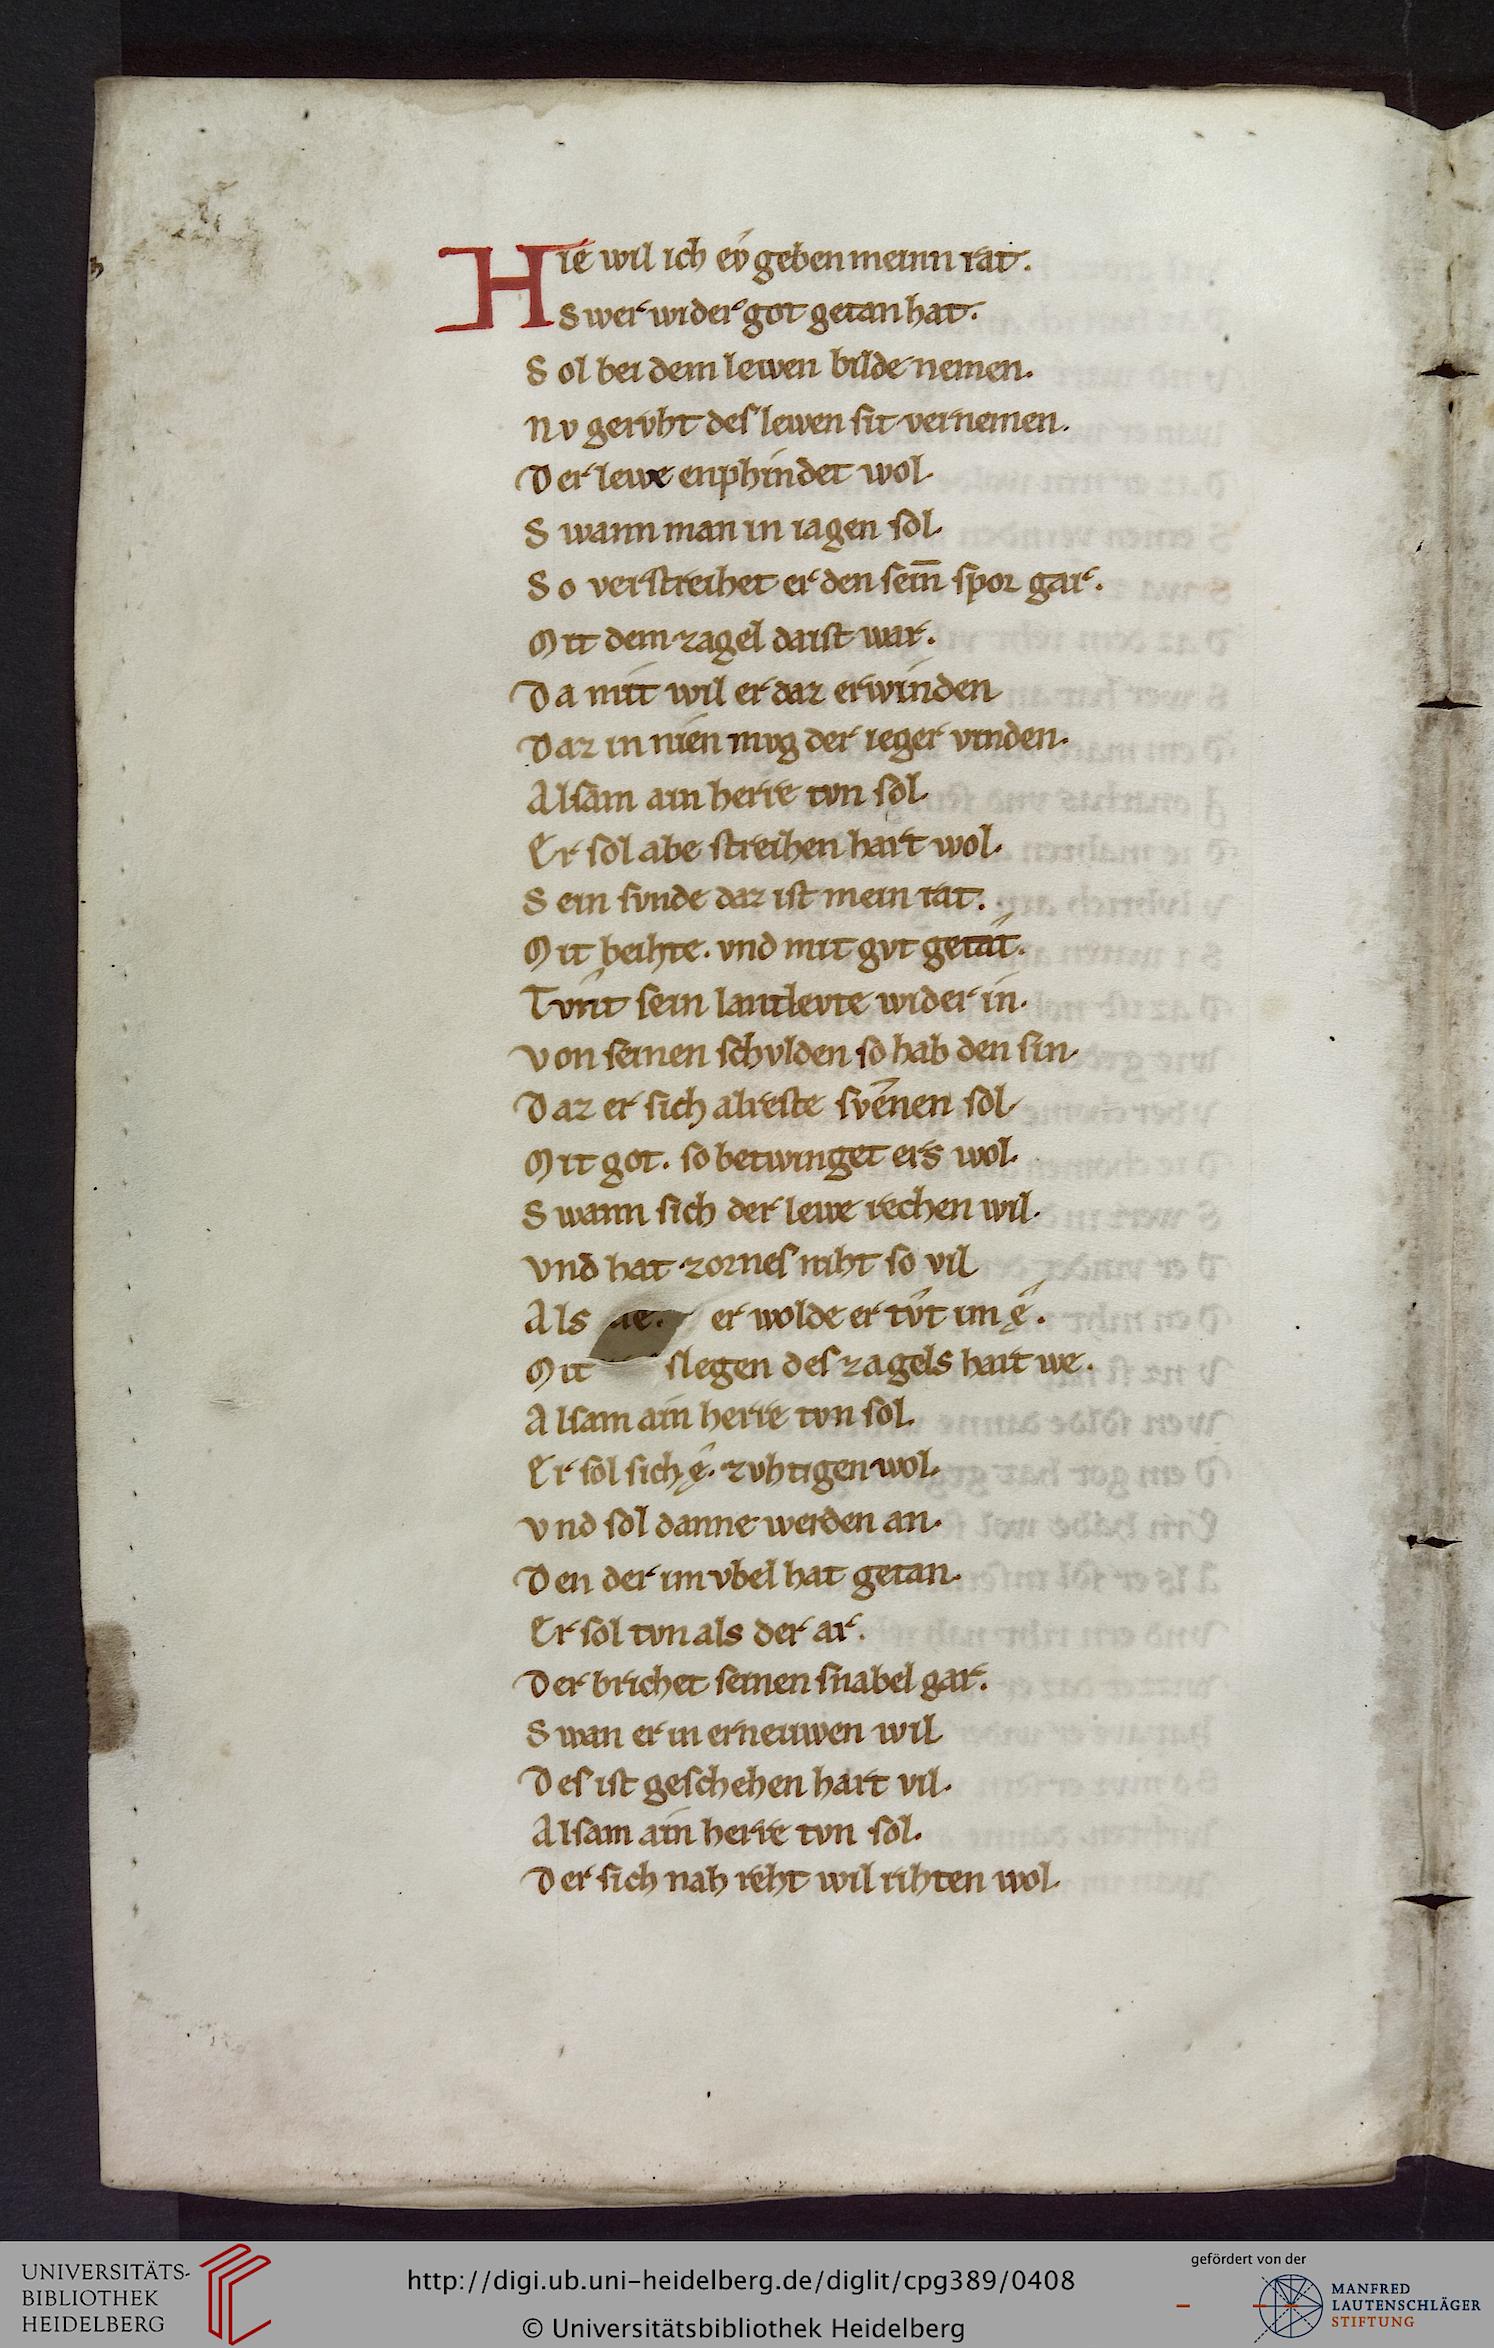 Hie wil ich ev́ geben meinn rat.
Swer wider got getan hat.
Sol bei dem lewen bilde nemen.
Nv gervht des lewen sit vernemen.
Der lewe enphindet wol.
Swann man in iagen sol.
So verstreihet er den sein̄ spor gar.
Mit dem zagel daist war.
Da mit wil er daz erwinden
Daz in nien mvg der ieger vinden.
Alsam ain herre tvn sol.
Er sol abe streihen hart wol.
Sein svnde daz ist mein rat.
Mit beihte. vnd mit gvt getat.
Tvnt sein lantlevte wider in.
Von seinen schvlden so hab den sin.
Daz er sich alreste svenen sol.
Mit got. so betwinget ers wol.
Swann sich der lewe rechen wil.
Vnd hat zornes niht so vil
Als er wolde er tv́t im ę́.
Mit slegen des zagels hart we.
Alsam ain herre tvn sol.
Er sol sich ę́. zvhtigen wol.
Vnd sol danne werden an.
Den der im vbel hat getan.
Er sol tvn als der ar.
Der brichet seinen snabel gar.
Swan er in erneuwen wil
Des ist geschehen hart vil.
Alsam ain herre tvn sol.
Der sich nah reht wil rihten wol.
UNIVERSITÄTS-
BIBLIOTHEK
HEIDELBERG
http://digi.ub.uni-heidelberg.de/diglit/cpg389/0408
© Universitätsbibliothek Heidelberg
gefördert von der
MANFRED
LAUTENSCHLÄGER
STIFTUNG